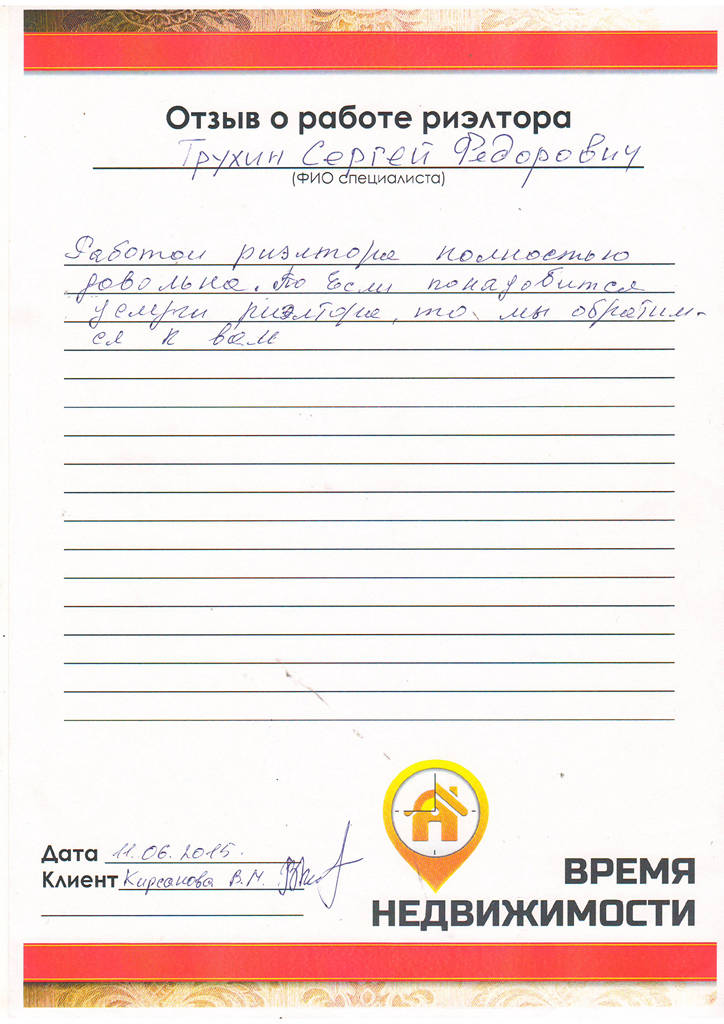 Отзыв о работе риэлтора
Трухин Сергей Федорович
(ФИО специалиста)
Работой риэлтора полностью
довольна. По Если понадобится
услуги риэлтора, то мы обратим-
ся к вам
Дата 11.06.2015.
Клиент Кирсанова В.М.
ВРЕМЯ
НЕДВИЖИМОСТИ